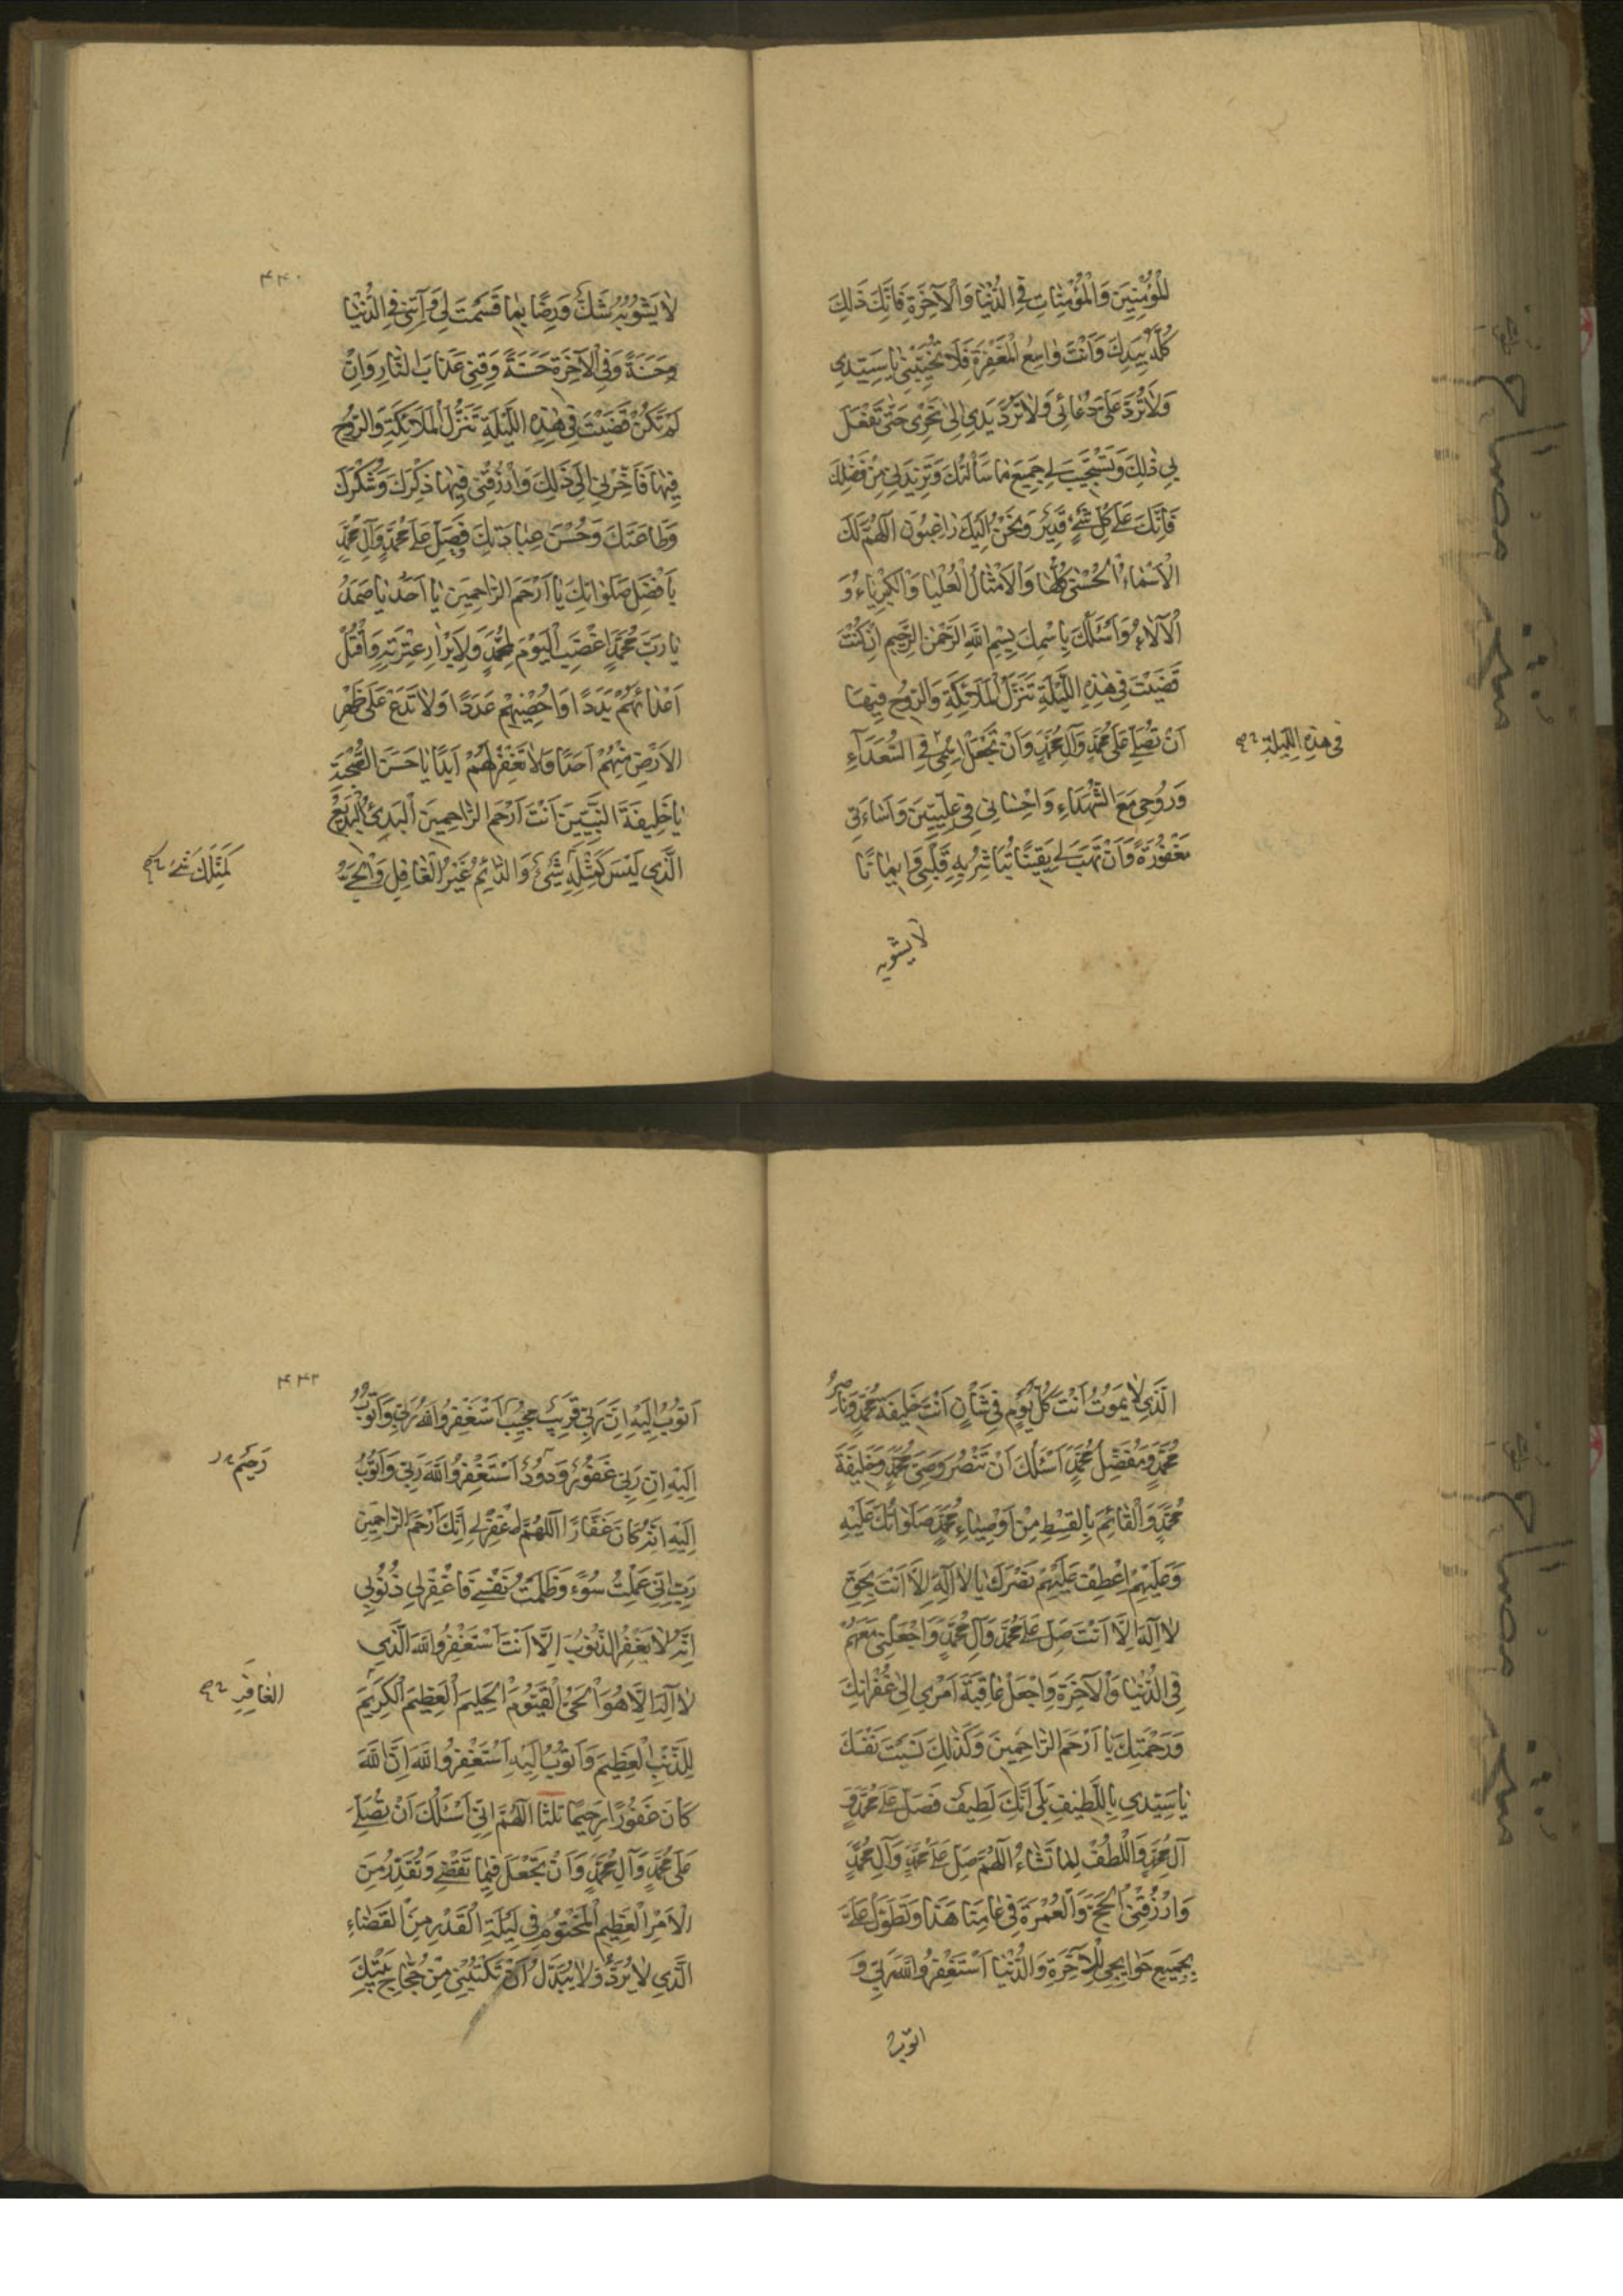 لِلْمُؤْمِنِينَ وَالْمُؤْمِنَاتِ فِي الدُّنْيَا وَالْآخِرَةِ فَاِنَّكَ ذٰلِكَ
كُلُّهُ بِيَدِكَ وَاَنْتَ وَاسِعُ الْمَغْفِرَةِ فَلَا تُخَيِّبْنِي يَا سَيِّدِي
وَلَا تَرُدَّ عَلَيَّ دُعَائِي وَلَا تَرُدَّ يَدِي اِلىٰ نَحْرِي حَتّىٰ تَفْعَلَ
بِي ذٰلِكَ وَتَسْتَجِيبَ لِي جَمِيعَ مَا سَاَلْتُكَ وَتَزِيدَنِي مِنْ فَضْلِكَ
فَاِنَّكَ عَلىٰ كُلِّ شَيْءٍ قَدِيرٌ وَنَحْنُ اِلَيْكَ رَاغِبُونَ اَللّٰهُمَّ لَكَ
الْاَسْمَاءُ الْحُسْنىٰ كُلُّهَا وَالْاَمْثَالُ الْعُلْيَا وَالْكِبْرِيَاءُ وَ
الْآلَاءُ وَاَسْئَلُكَ بِاسْمِكَ بِسْمِ اللهِ الرَّحْمٰنِ الرَّحِيمِ اِنْ كُنْتَ
قَضَيْتَ فِي هٰذِهِ اللَّيْلَةِ تَنَزُّلَ الْمَلَائِكَةِ وَالرُّوحِ فِيهَا
اَنْ تُصَلِّيَ عَلىٰ مُحَمَّدٍ وَآلِ مُحَمَّدٍ وَاَنْ تَجْعَلَ اسْمِي فِي السُّعَدَاءِ
فِي هٰذِهِ اللَّيْلَةِ
وَرُوحِي مَعَ الشُّهَدَاءِ وَاِحْسَانِي فِي عِلِّيِّينَ وَاِسَاءَتِي
مَغْفُورَةً وَاَنْ تَهَبَ لِي يَقِينًا تُبَاشِرُ بِهِ قَلْبِي وَاِيمَانًا
لا يشوبه
۴۴۰
لَا يَشُوبُهُ شَكٌّ وَرِضًا بِمَا قَسَمْتَ لِي وَآتِنِي فِي الدُّنْيَا
حَسَنَةً وَفِي الْآخِرَةِ حَسَنَةً وَقِنِي عَذَابَ النَّارِ وَاِنْ
لَمْ تَكُنْ قَضَيْتَ فِي هٰذِهِ اللَّيْلَةِ تَنَزُّلَ الْمَلَائِكَةِ وَالرُّوحِ
فِيهَا فَاَخِّرْنِي اِلىٰ ذٰلِكَ وَارْزُقْنِي فِيهَا ذِكْرَكَ وَشُكْرَكَ
وَطَاعَتَكَ وَحُسْنَ عِبَادَتِكَ فَصَلِّ عَلىٰ مُحَمَّدٍ وَآلِ مُحَمَّدٍ
بِاَفْضَلِ صَلَوَاتِكَ يَا اَرْحَمَ الرَّاحِمِينَ يَا اَحَدُ يَا صَمَدُ
يَا رَبَّ مُحَمَّدٍ اغْضَبِ الْيَوْمَ لِمُحَمَّدٍ وَلِاَبْرَارِ عِتْرَتِهِ وَاقْتُلْ
اَعْدَائَهُمْ بَدَدًا وَاحْصِهِمْ عَدَدًا وَلَا تَدَعْ عَلىٰ ظَهْرِ
الْاَرْضِ مِنْهُمْ اَحَدًا وَلَا تَغْفِرْ لَهُمْ اَبَدًا يَا حَسَنَ الصُّحْبَةِ
يَا خَلِيفَةَ النَّبِيِّينَ اَنْتَ اَرْحَمُ الرَّاحِمِينَ الْبَدِيءُ الْبَدِيعُ
الَّذِي لَيْسَ كَمِثْلِهِ شَيْءٌ وَالدَّائِمُ غَيْرُ الْغَافِلِ وَالْحَيُّ
كَمِثْلِكَ شَيْءٌ
الَّذِي لَا يَمُوتُ اَنْتَ كُلَّ يَوْمٍ فِي شَأْنٍ اَنْتَ خَلِيفَةُ مُحَمَّدٍ وَنَاصِرُ
مُحَمَّدٍ وَمُفَضِّلُ مُحَمَّدٍ اَسْئَلُكَ اَنْ تَنْصُرَ وَصِيَّ مُحَمَّدٍ وَخَلِيفَةَ
مُحَمَّدٍ وَالْقَائِمَ بِالْقِسْطِ مِنْ اَوْصِيَاءِ مُحَمَّدٍ صَلَوَاتُكَ عَلَيْهِ
وَعَلَيْهِمْ اِعْطِفْ عَلَيْهِمْ نَصْرَكَ يَا لَا اِلٰهَ اِلَّا اَنْتَ بِحَقِّ
لَا اِلٰهَ اِلَّا اَنْتَ صَلِّ عَلىٰ مُحَمَّدٍ وَآلِ مُحَمَّدٍ وَاجْعَلْنِي مَعَهُمْ
فِي الدُّنْيَا وَالْآخِرَةِ وَاجْعَلْ عَاقِبَةَ اَمْرِي اِلىٰ غُفْرَانِكَ
وَرَحْمَتِكَ يَا اَرْحَمَ الرَّاحِمِينَ وَكَذٰلِكَ نَسَبْتَ نَفْسَكَ
يَا سَيِّدِي بِاللَّطِيفِ بَلىٰ اِنَّكَ لَطِيفٌ فَصَلِّ عَلىٰ مُحَمَّدٍ وَ
آلِ مُحَمَّدٍ وَالْطُفْ لِمَا تَشَاءُ اَللّٰهُمَّ صَلِّ عَلىٰ مُحَمَّدٍ وَآلِ مُحَمَّدٍ
وَارْزُقْنِي الْحَجَّ وَالْعُمْرَةَ فِي عَامِنَا هٰذَا وَتَطَوَّلْ عَلَيَّ
بِجَمِيعِ حَوَائِجِي لِلْآخِرَةِ وَالدُّنْيَا اَسْتَغْفِرُ اللهَ رَبِّي وَ
اتوب
۴۴۲
اَتُوبُ اِلَيْهِ اِنَّ رَبِّي قَرِيبٌ مُجِيبٌ اَسْتَغْفِرُ اللهَ رَبِّي وَاَتُوبُ
اِلَيْهِ اِنَّ رَبِّي غَفُورٌ وَدُودٌ اَسْتَغْفِرُ اللهَ رَبِّي وَاَتُوبُ
رَحِيمٌ
اِلَيْهِ اِنَّهُ كَانَ غَفَّارًا اَللّٰهُمَّ اغْفِرْ لِي اِنَّكَ اَرْحَمُ الرَّاحِمِينَ
رَبِّ اِنِّي عَمِلْتُ سُوءً وَظَلَمْتُ نَفْسِي فَاغْفِرْ لِي ذُنُوبِي
اِنَّهُ لَا يَغْفِرُ الذُّنُوبَ اِلَّا اَنْتَ اَسْتَغْفِرُ اللهَ الَّذِي
لَا اِلٰهَ اِلَّا هُوَ الْحَيُّ الْقَيُّومُ الْحَلِيمَ الْعَظِيمَ الْكَرِيمَ
الْغَافِرِ
لِلذَّنْبِ الْعَظِيمَ وَاَتُوبُ اِلَيْهِ اَسْتَغْفِرُ اللهَ اِنَّ اللهَ
كَانَ غَفُورًا رَحِيمًا ثَلٰثًا اَللّٰهُمَّ اِنِّي اَسْئَلُكَ اَنْ تُصَلِّيَ
عَلىٰ مُحَمَّدٍ وَآلِ مُحَمَّدٍ وَاَنْ تَجْعَلَ فِيمَا تَقْضِي وَتُقَدِّرُ مِنَ
الْاَمْرِ الْعَظِيمِ الْمَحْتُومِ فِي لَيْلَةِ الْقَدْرِ مِنَ الْقَضَاءِ
الَّذِي لَا يُرَدُّ وَلَا يُبَدَّلُ اَنْ تَكْتُبَنِي مِنْ حُجَّاجِ بَيْتِكَ